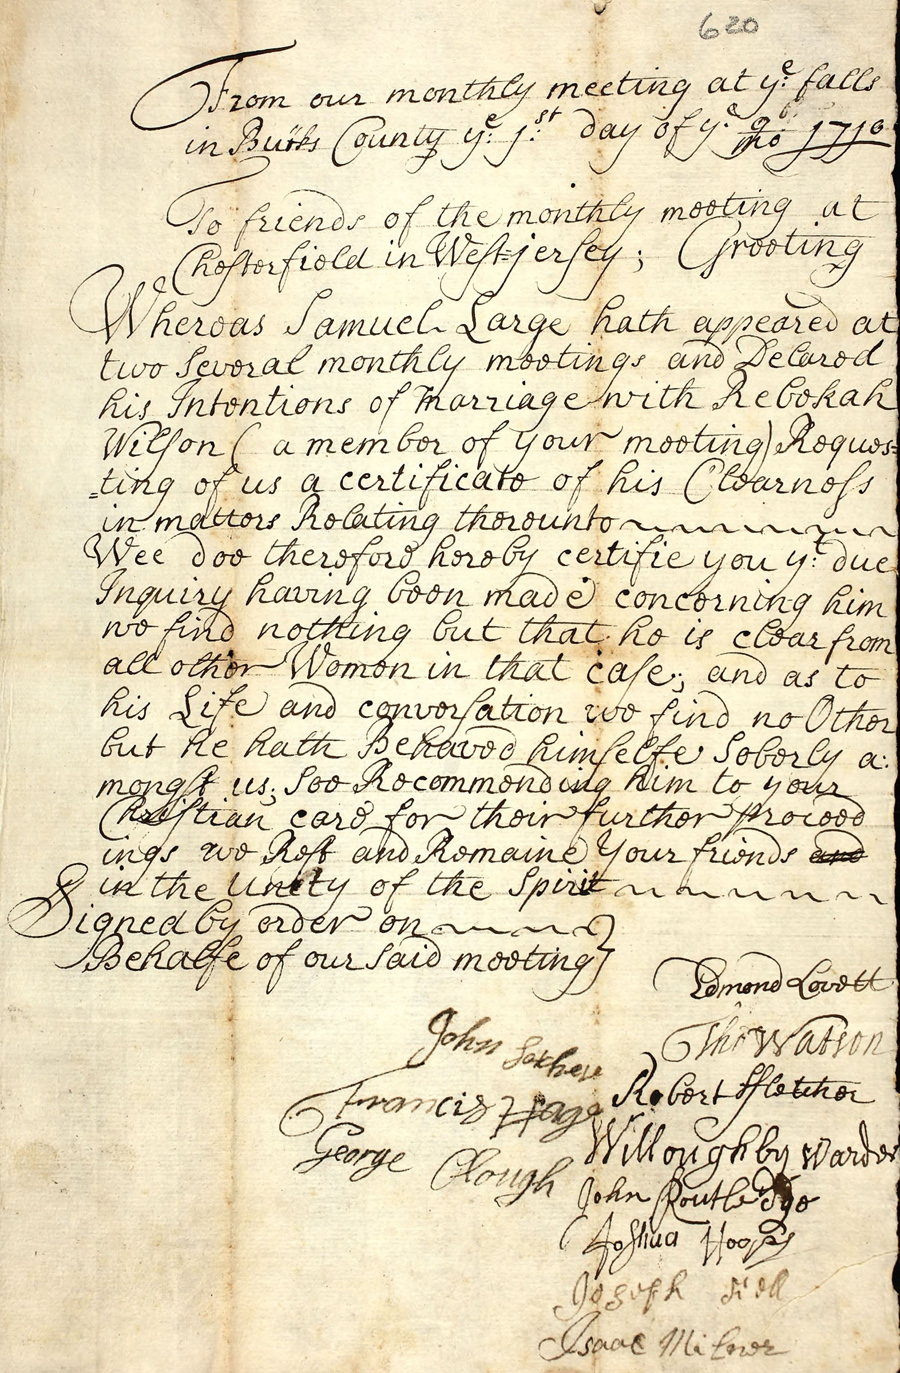 620
From our monthly meeting at yͤ: falls
in Bucks County yͤ: 1:ˢᵗ day of yͤ: 9ᵇ: mo 1710
To friends of the monthly meeting at
Chesterfield in West=jersey; Greeting
Whereas Samuel Large hath appeared at
two several monthly meetings and Delared
his Intentions of Marriage with Rebekah
Wilson ( a member of your meeting) Reques=
=ting of us a certificate of his Clearness
in matters Relating thereunto
Wee doe therefore hereby certifie you yͭ: due
Inquiry having been made concerning him
we find nothing but that he is clear from
all other Women in that case; and as to
his Life and conversation we find no Other
but he hath Behaved himselfe Soberly a:
mongst us; Soe Recommending him to your
Christian care for their further proceed
ings we Rest and Remaine Your friends and
in the Unety of the Spirit
Signed by order on
Behalfe of our said meeting
Edmond Lovett
John
Tho Watson
Francis Hage
Robert ffletcher
George Clough
Willoughby Warder
John Routledge
Joshua Hoops
Joseph
Isaac Milner